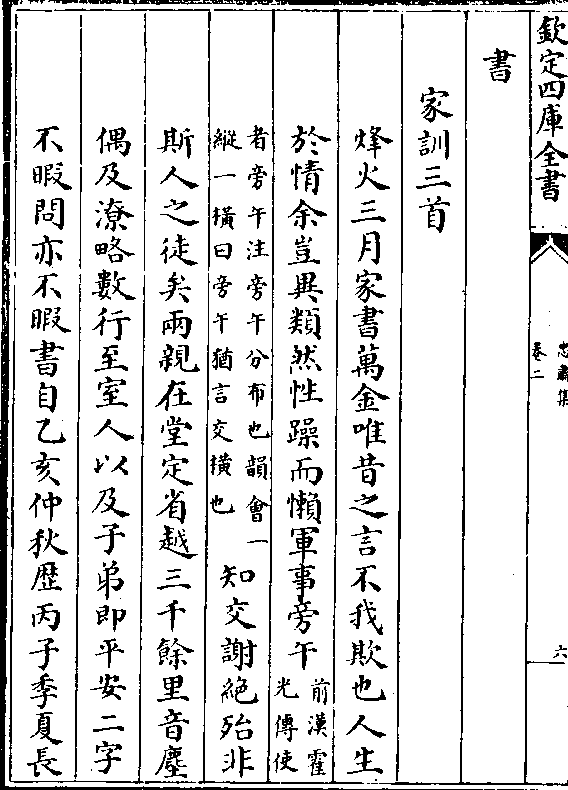 欽定四庫全書
忠肅集
卷二
六
書
家訓三首
烽火三月家書萬金唯昔之言不我欺也人生
於情余豈異類然性躁而懶軍事旁午前漢霍光傳使
者旁午注旁午分布也韻會一縱一橫曰旁午猶言交橫也知交謝絶殆非
斯人之徒矣兩親在堂定省越三千餘里音塵
偶及潦略數行至室人以及子弟即平安二字
不暇問亦不暇書自乙亥仲秋歴丙子季夏長